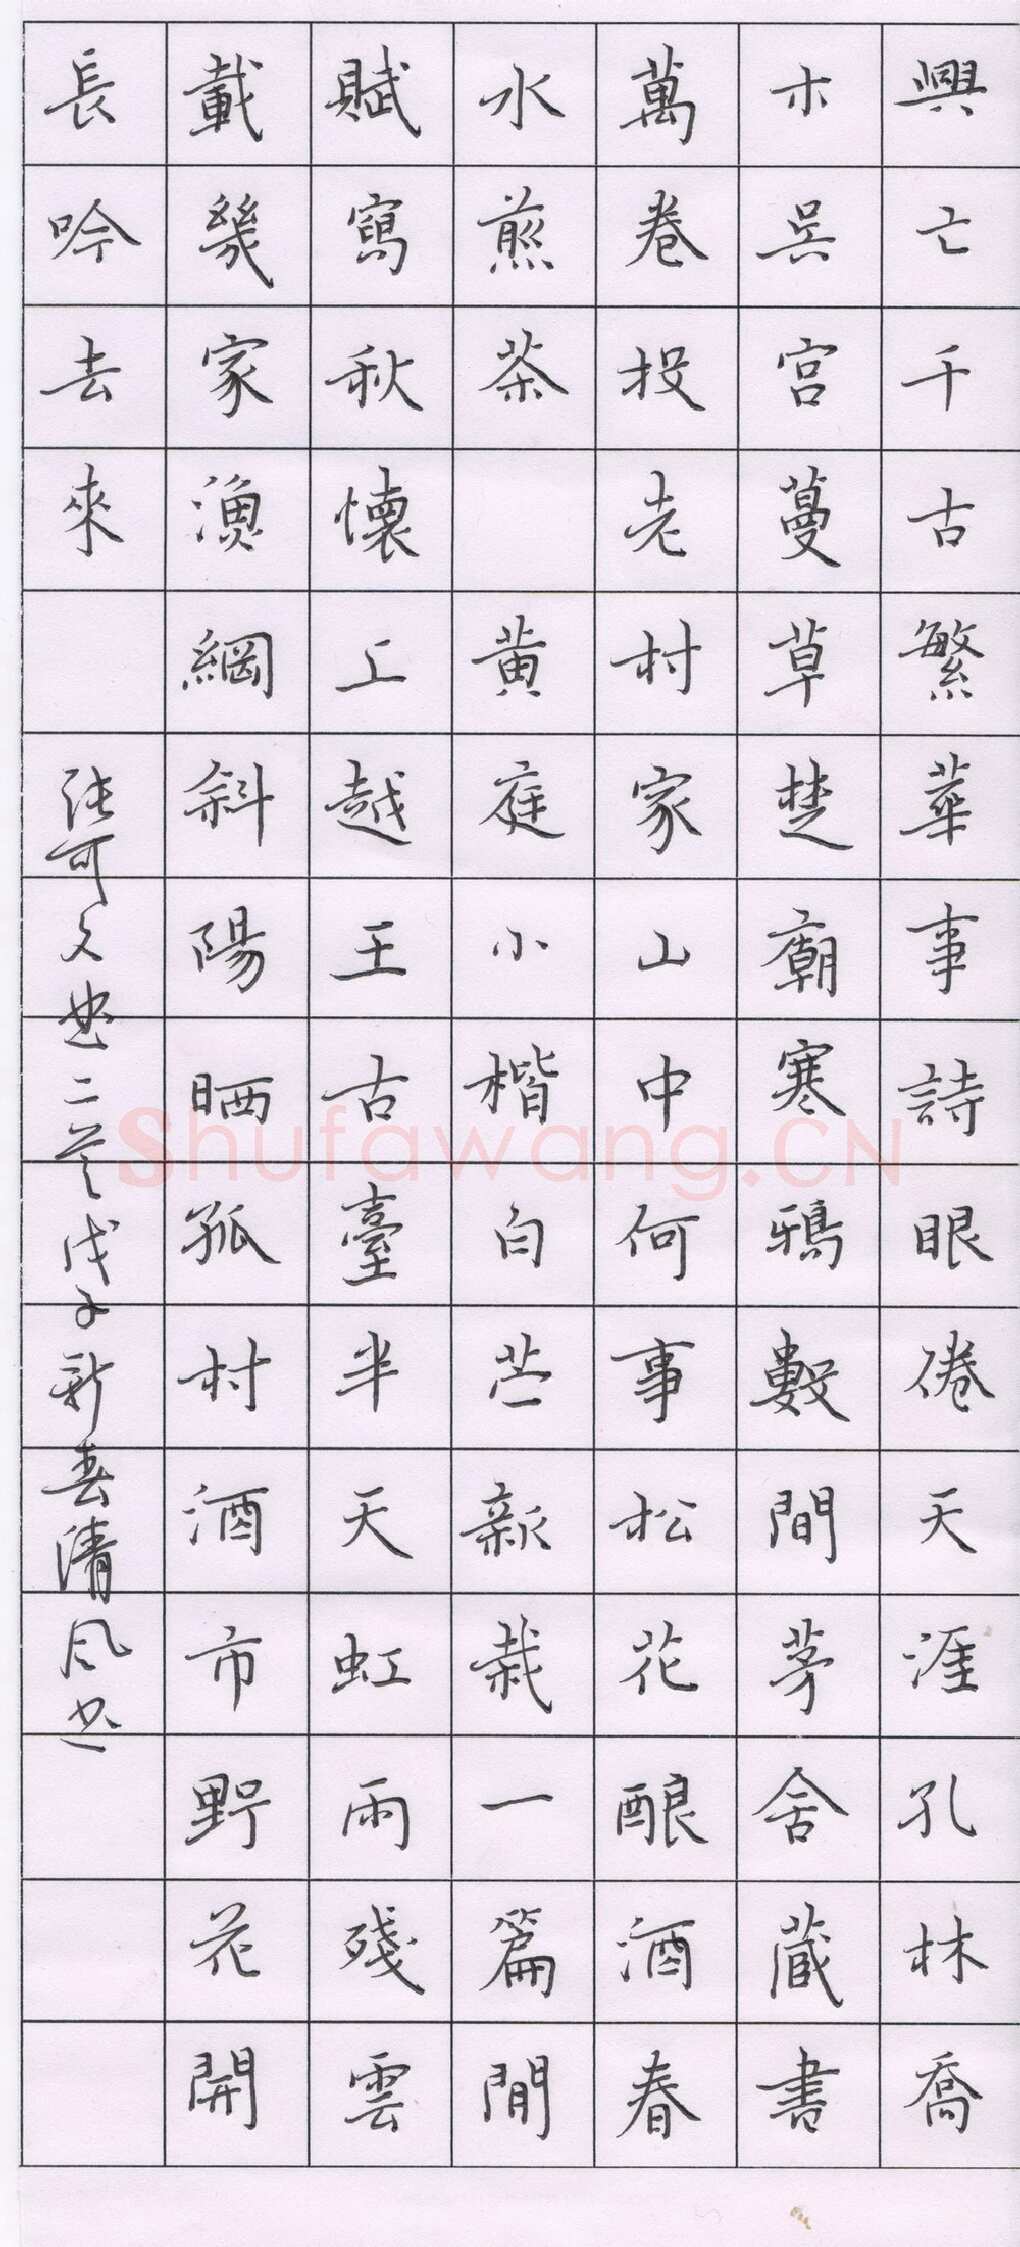 興亡千古繁華事詩眼倦天涯孔林喬
木吳宮蔓草楚廟寒鴉數間茅舍藏書
萬卷投老村家山中何事松花酿酒春
水煎茶 黃庭小楷白苎新栽一篇閒
賦寫秋懷上越王古臺半天虹雨殘雲
載幾家漁網斜陽晒孤村酒市野花開
長吟去來
張可久曲二首戊子新春清風書
Shufawang.CN